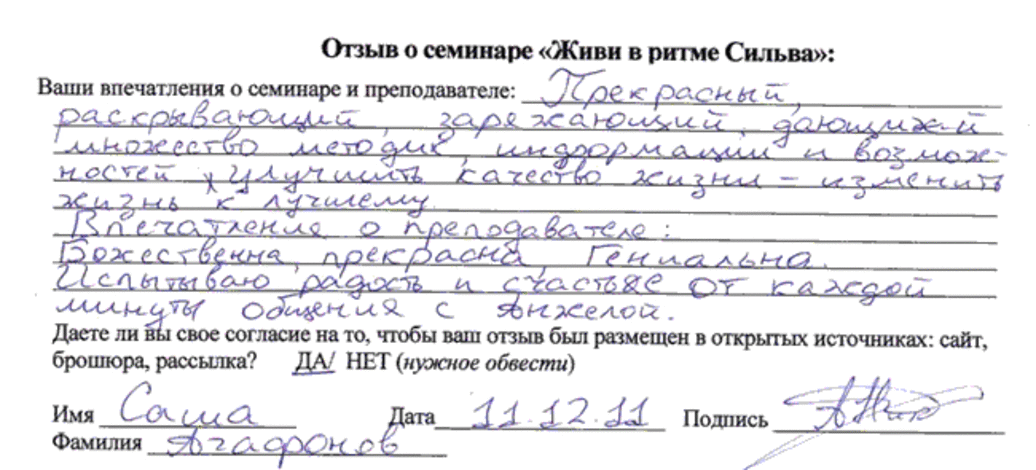 Отзыв о семинаре «Живи в ритме Сильва»:
Ваши впечатления о семинаре и преподавателе: Прекрасный,
раскрывающий, заряжающий, дающий
множество методик, информации и возмож-
ностей улучшить качество жизни - изменить
жизнь к лучшему.
Впечатление о преподавателе:
Божественна, прекрасна, Гениальна.
Испытываю радость и счастье от каждой
минуты общения с Анжелой.
Даете ли вы свое согласие на то, чтобы ваш отзыв был размещен в открытых источниках: сайт,
брошюра, рассылка? ДА/ НЕТ (нужное обвести)
Имя Саша Дата 11.12.11 Подпись
Фамилия Агафонов